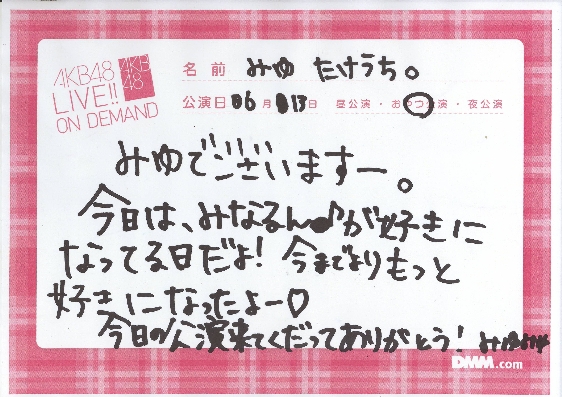 AKB48
LIVE!!
ON DEMAND
AKB
48
名前 みゆ たけうち。
公演日 06月13日 昼公演・おやつ公演・夜公演
みゆでございますー。
今日は、みなるん♪が好きに
なってる日だよ! 今までよりもっと
好きになったよー♡
今日の公演来てくだってありがとう!
DMM.com